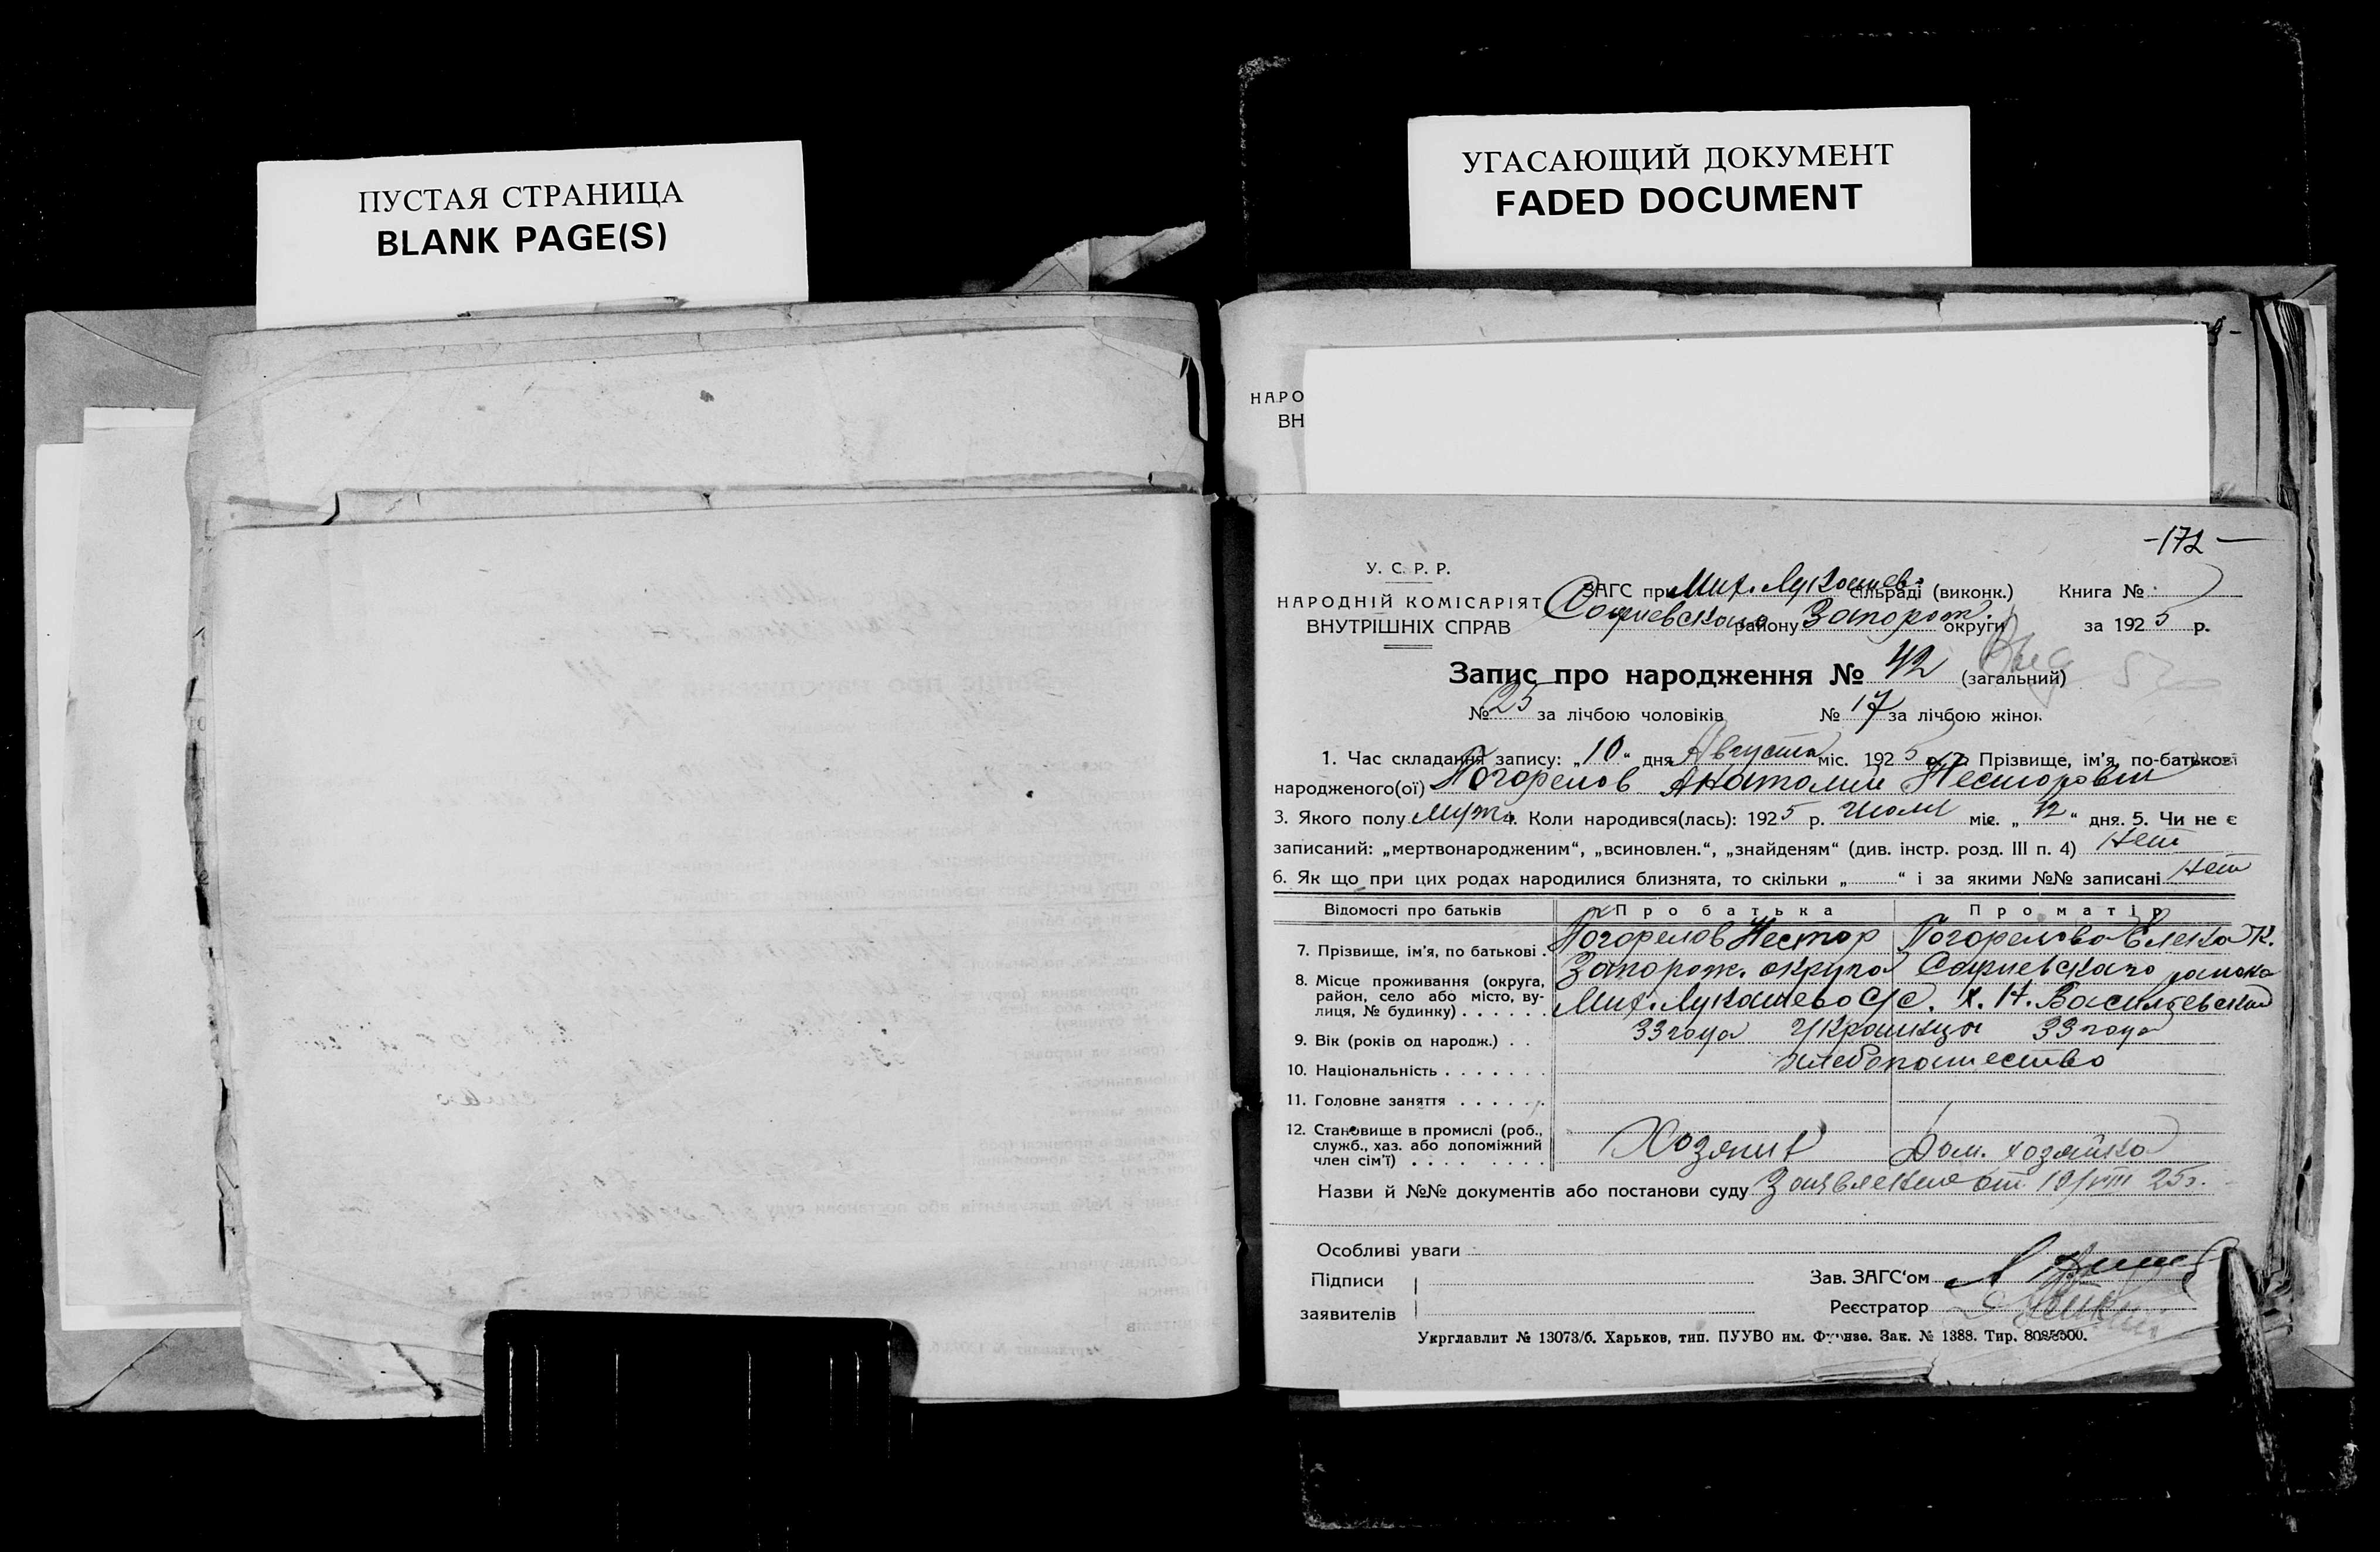 ПУСТАЯ СТРАНИЦА
BLANK PAGE(S)
УГАСАЮЩИЙ ДОКУМЕНТ
FADED DOCUMENT
НАРО
ВН
-172-
У. С. Р. Р.
НАРОДНІЙ КОМІСАРІЯТ
ВНУТРІШНІХ СПРАВ
ЗАГС при Мих. Лукашев. сільраді (виконк.) Книга №
Софиевскаго району Запорож. округи за 1925 р.
Запис про народження № 42 (загальний)
№ 25 за лічбою чоловіків № 17 за лічбою жінок
1. Час складання запису: „10“ дня Августа міс. 1925 р. 2. Прізвище, ім'я, по-батькові
народженого(ої) Погорелов Анатолий Несторович
3. Якого полу мужс. 4. Коли народився(лась): 1925 р. Июля міс. „12“ дня. 5. Чи не є
записаний: „мертвонародженим“, „всиновлен.“, „знайденям“ (див. інстр. розд. III п. 4) Нет
6. Як що при цих родах народилися близнята, то скільки „ “ і за якими №№ записані Нет
Відомості про батьків Про батька Про матір
7. Прізвище, ім'я, по батькові . Погорелов Нестор Погорелова Елена К.
8. Місце проживання (округа, Запорож. округа Софиевскаго района
район, село або місто, ву-
лиця, № будинку) . . . . . . Мих. Лукашево с/с. х. Н. Васильевский
9. Вік (років од народж.) . . 33 года Украинцы 33 года
10. Національність . . . . . . . хлебопашество
11. Головне заняття . . . . . .
12. Становище в промислі (роб.,
служб., хаз. або допоміжний
член сім'ї) . . . . . . . . . Хозяин Дом. хозяйка
Назви й №№ документів або постанови суду Заявление от 10/VIII 25 г.
Особливі уваги
Підписи
заявителів
Зав. ЗАГС'ом
Реєстратор
Укрглавлит № 13073/б. Харьков, тип. ПУУВО им. Фрунзе. Зак. № 1388. Тир.